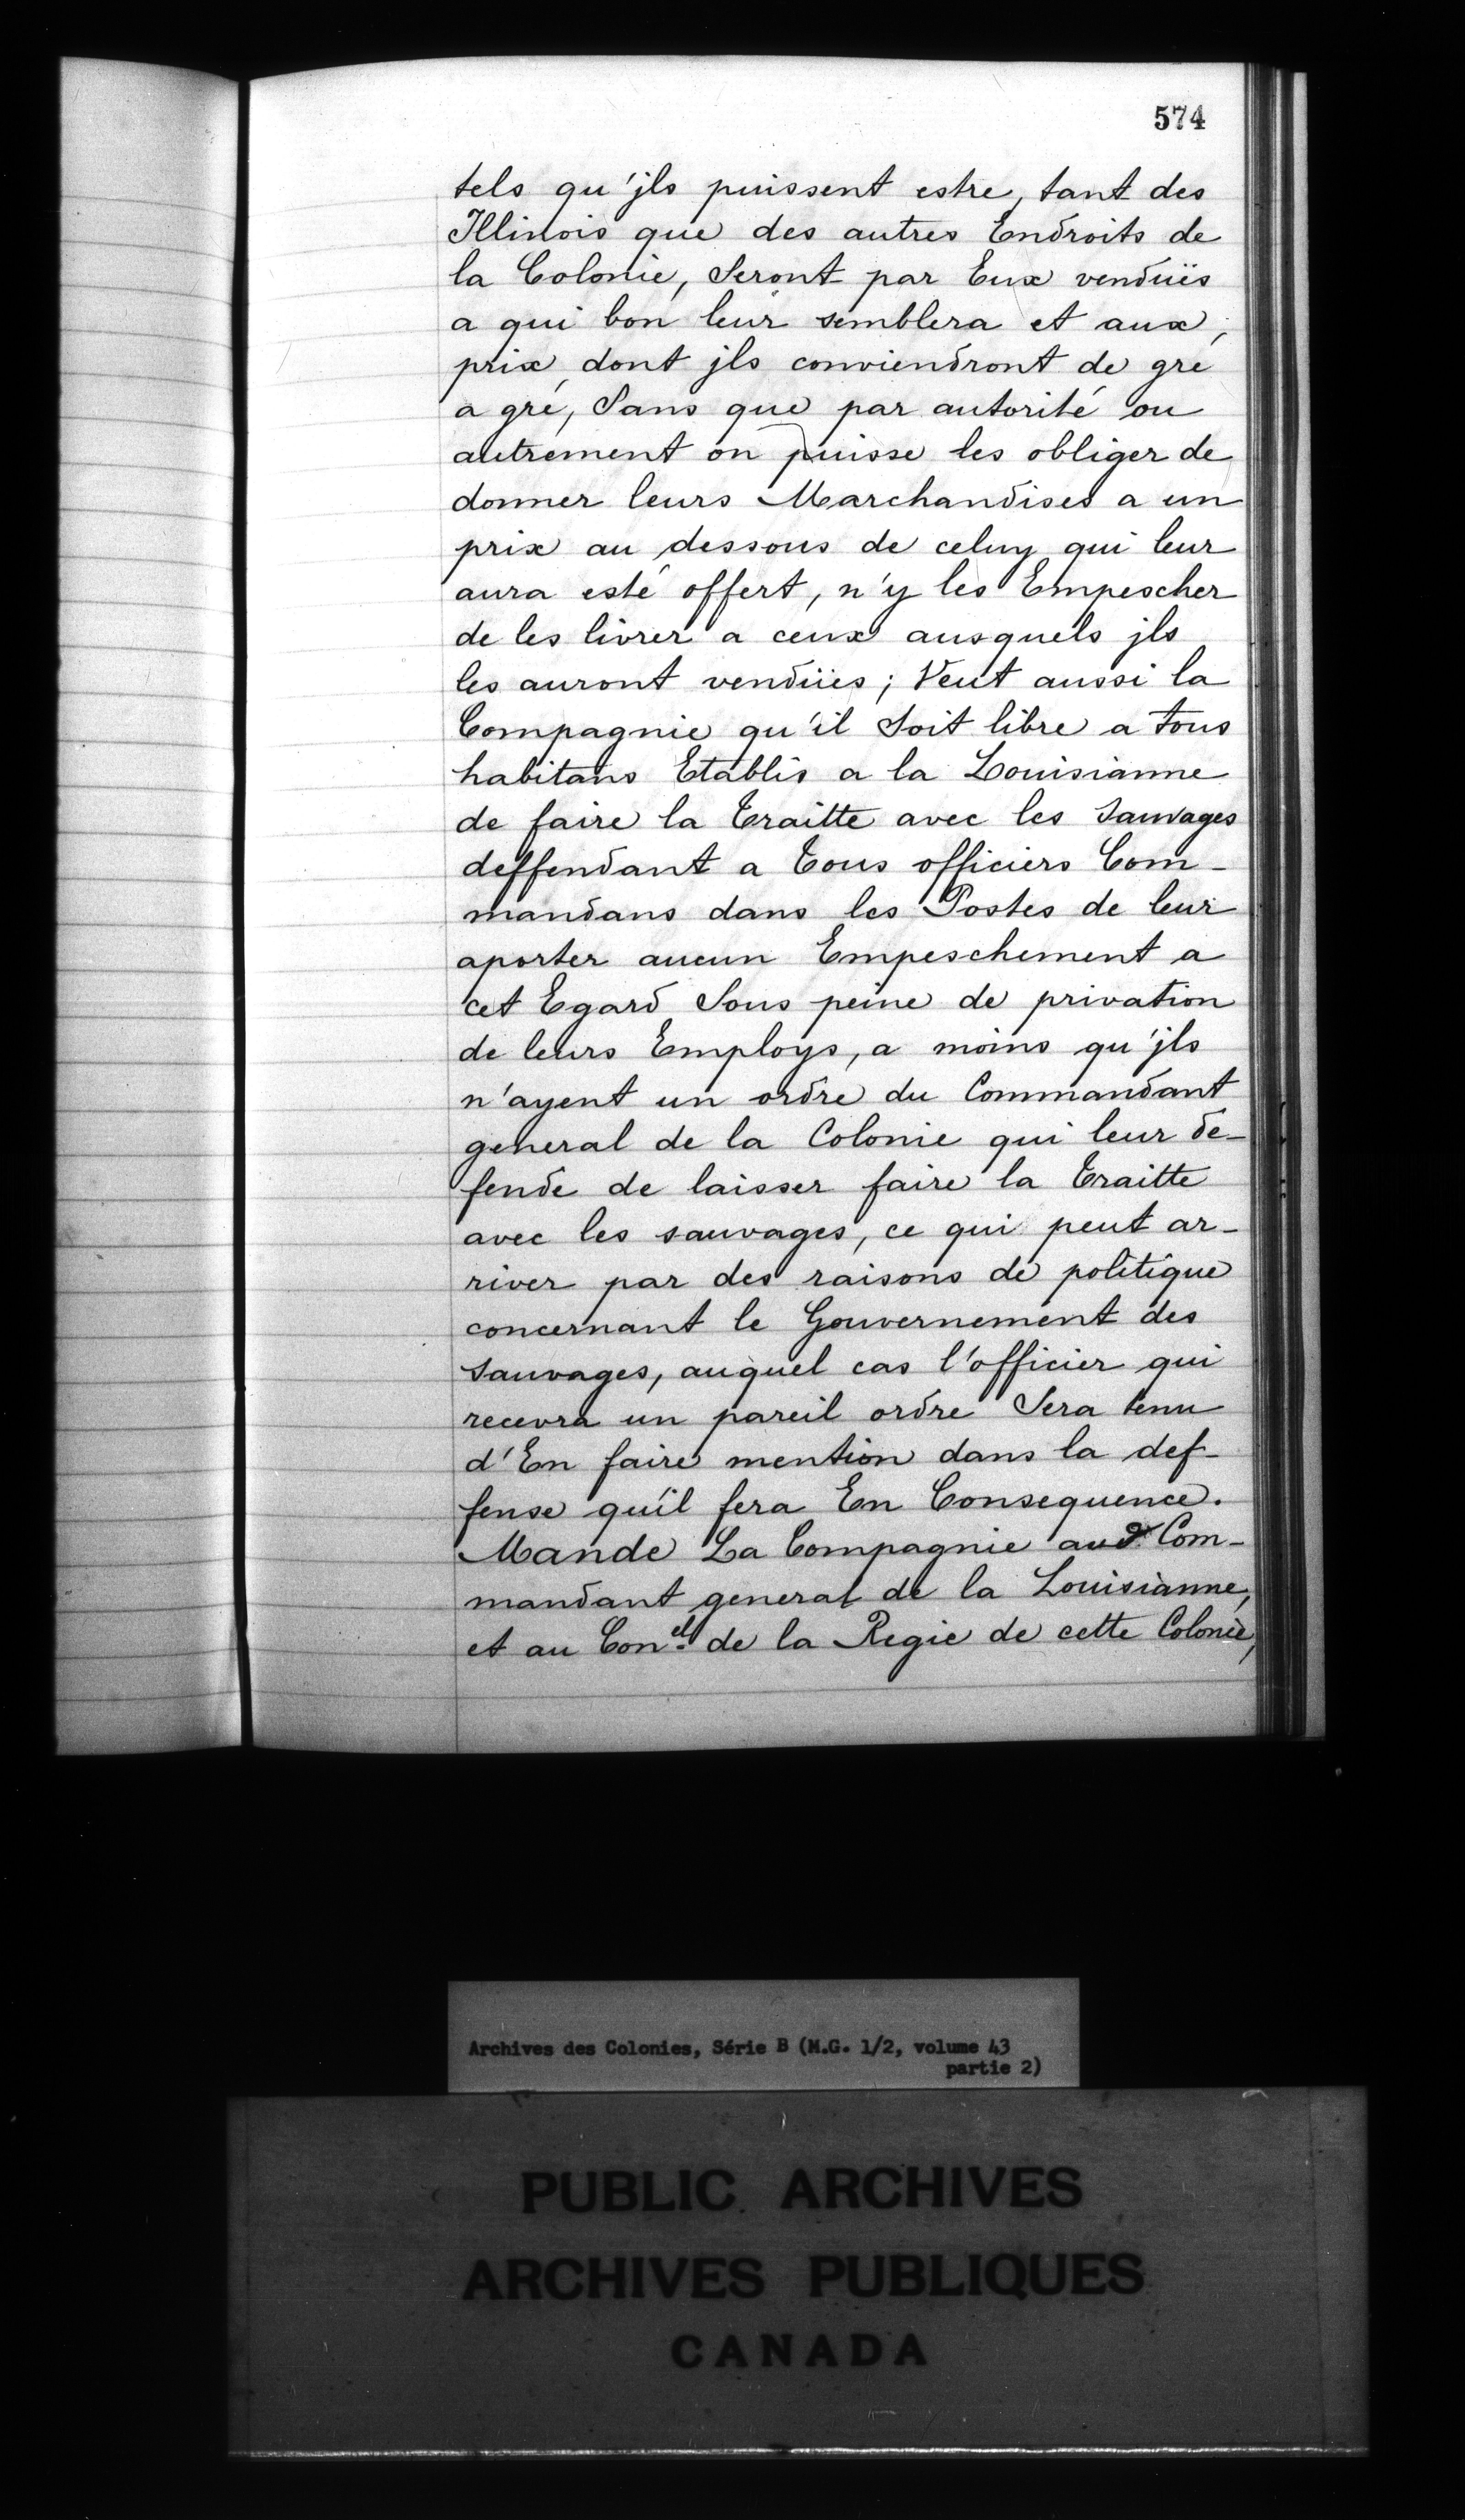 574
tels qu'jls puissent estre, tant des
Illinois que des autres Endroits de
la Colonie, Seront par Eux vendüës
a qui bon leur semblera et aux,
prix, dont jls conviendront de gré
a gré, Sans que par autorité ou
autrement on puisse les obliger de
donner leurs Marchandises a un
prix au dessous de celuy qui leur
aura esté offert, n'y les Empescher
de les livrer a ceux ausquels jls
les auront vendües; Veut aussi la
Compagnie qu'il Soit libre a tous
habitans Etablis a la Louisianne
de faire la Traitte avec les Sauvages
deffendant a Tous officiers Com-
mandans dans les Postes de leur
aporter aucun Empeschement a
cet Egard Sous peine de privation
de leurs Employs, a moins qu'jls
n'ayent un ordre du Commandant
general de la Colonie qui leur de-
fende de laisser faire la Traitte
avec les sauvages, ce qui peut ar-
river par des raisons de politique
concernant le Gouvernement des
Sauvages, auquel cas l'officier qui
recevra un pareil ordre Sera tenu
d'En faire mention dans la def-
fense qu'il fera En Consequence.
Mande La Compagnie aud. Com-
mandant general de la Louisianne,
et au Con.el de la Regie de cette Colonie,
Archives des Colonies, Série B (M.G. 1/2, volume 43
partie 2)
PUBLIC ARCHIVES
ARCHIVES PUBLIQUES
CANADA